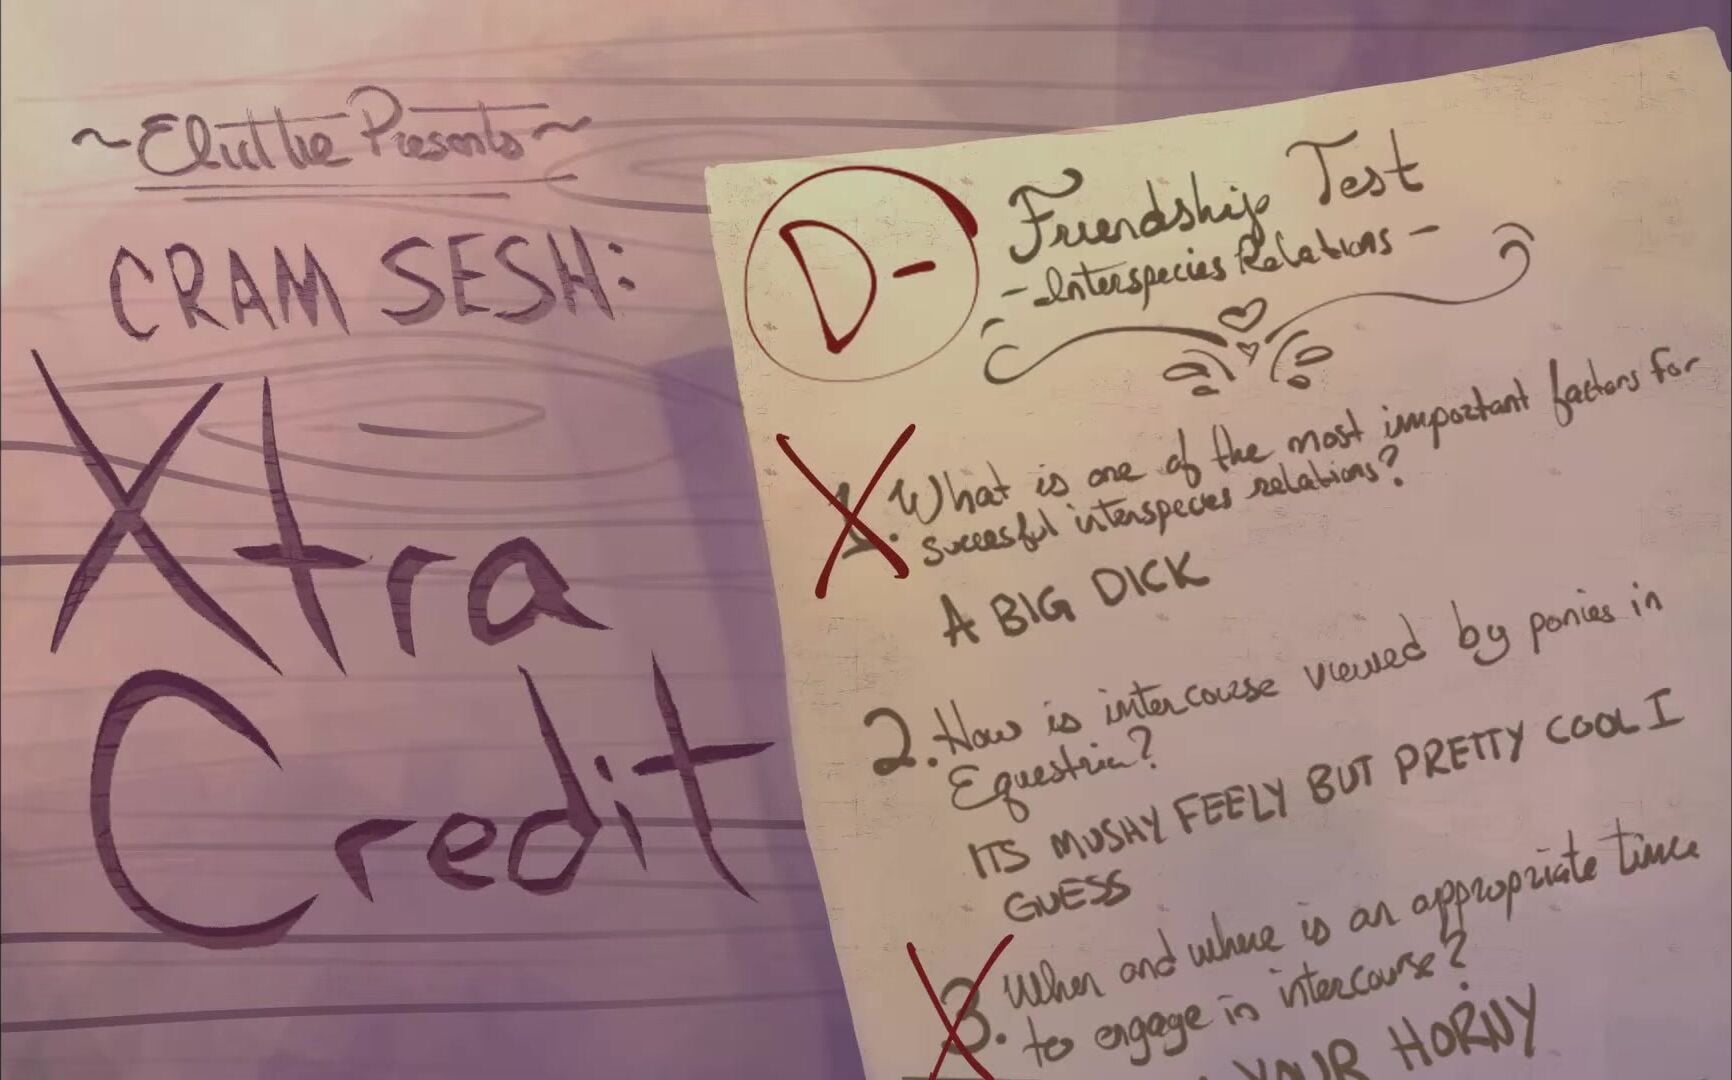 ~Eluthe Presents~
CRAM SESH:
Xtra
Credit
D-
Friendship Test
-Interspecies Relations-
1. What is one of the most important factors for
succesful interspecies relations?
A BIG DICK
2. How is intercourse viewed by ponies in
Equestria?
ITS MUSHY FEELY BUT PRETTY COOL I
GUESS
3. When and where is an appropriate time
to engage in intercourse?
YOUR HORNY